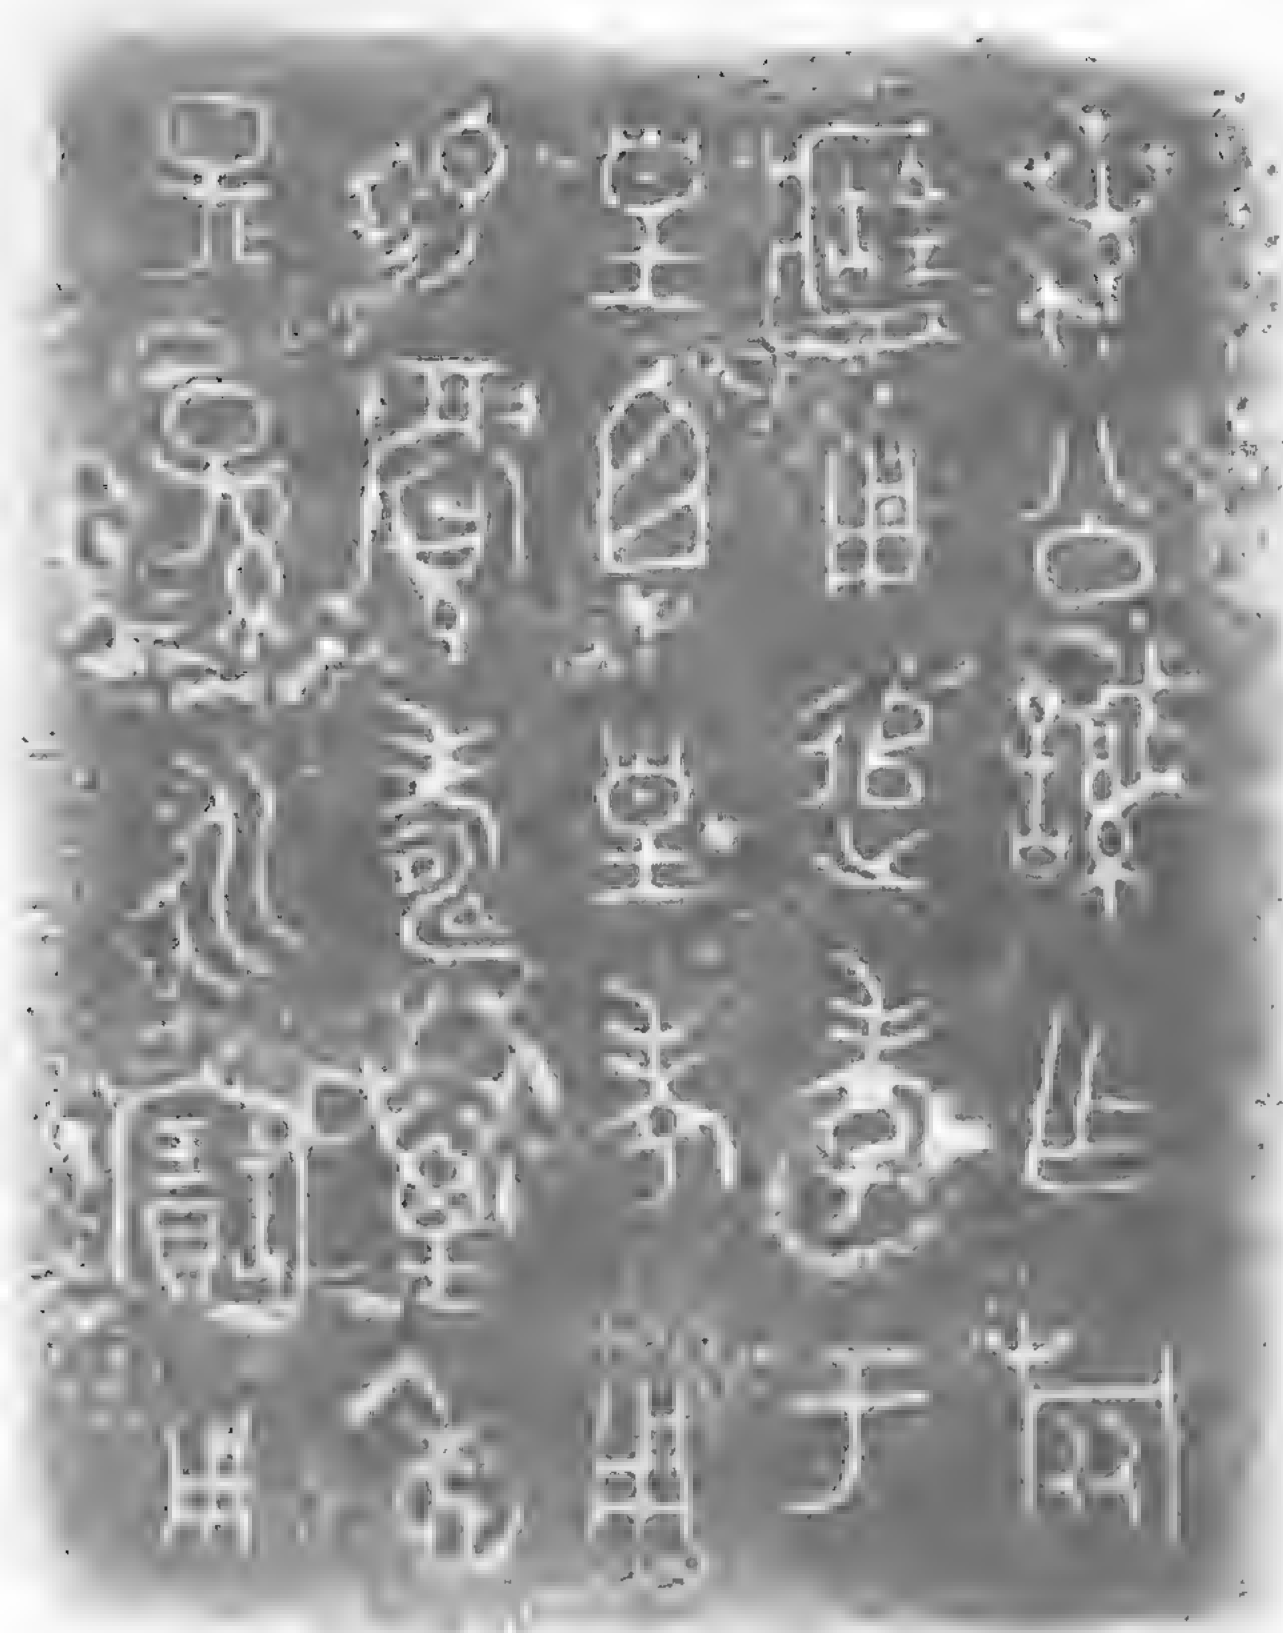 蠚公諴乍旅
匠用追孝于
皇且皇考用
易眉壽萬年
子孫永寶用